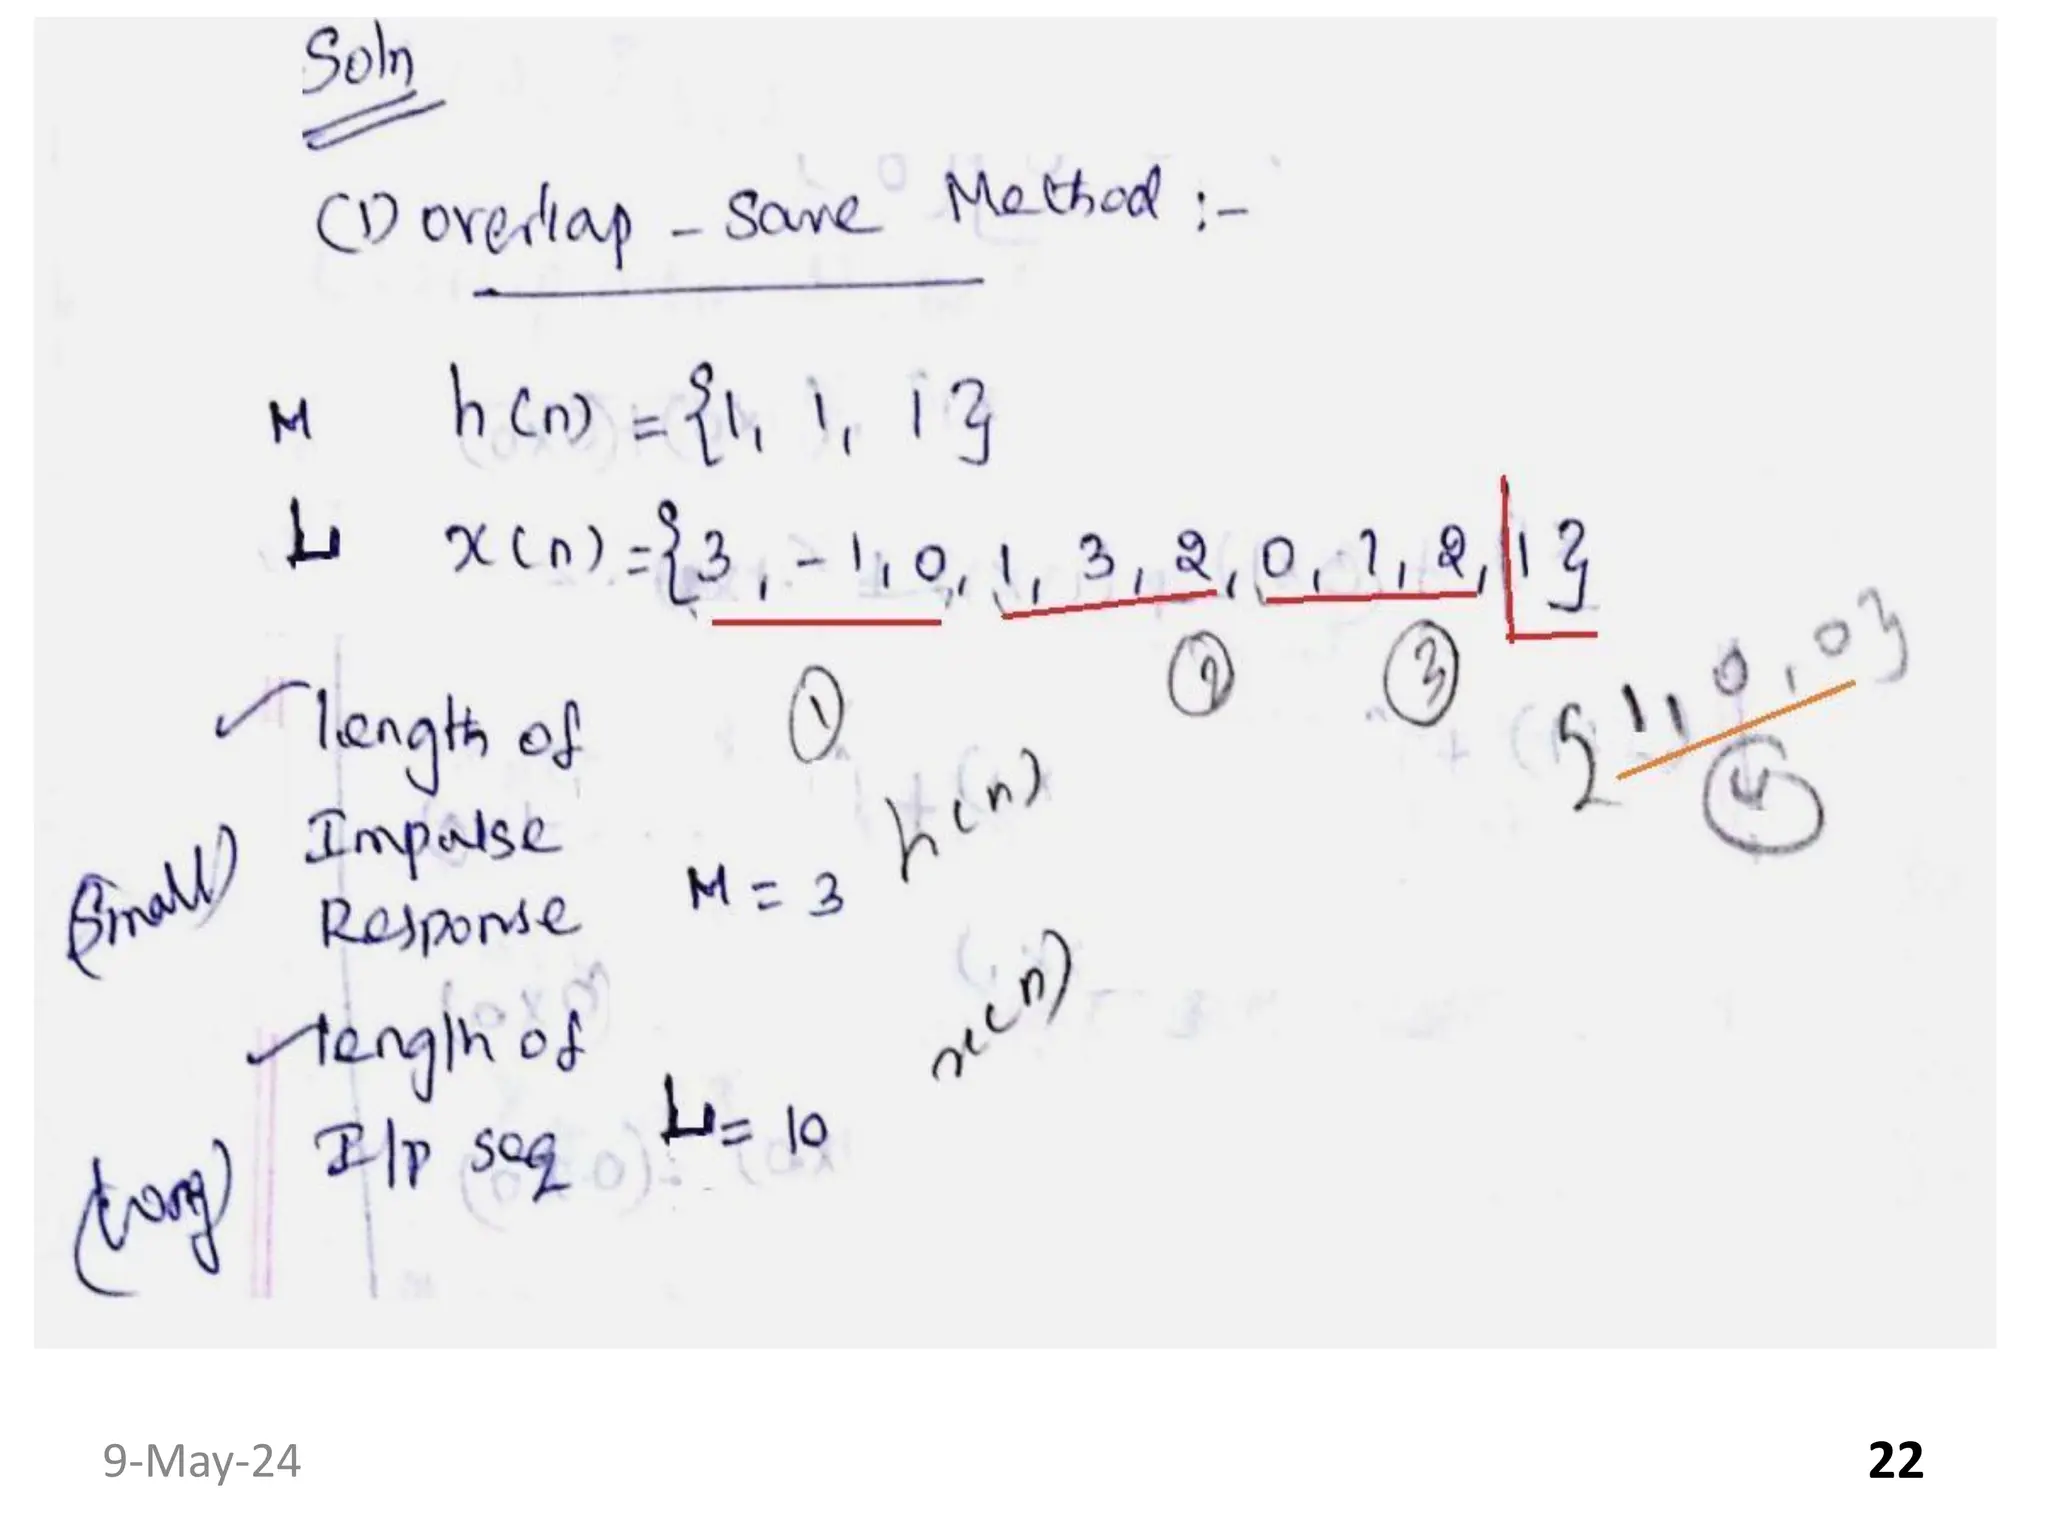 Soln
(1) overlap - save Method :-
M h(n) = {1, 1, 1}
L x(n) = {3, -1, 0, 1, 3, 2, 0, 1, 2, 1}
1 2 3 {1, 0, 0}
4
length of
Impulse
Response
(Small) M = 3 h(n)
length of
I/p seq
(Long) L = 10 x(n)
9-May-24
22